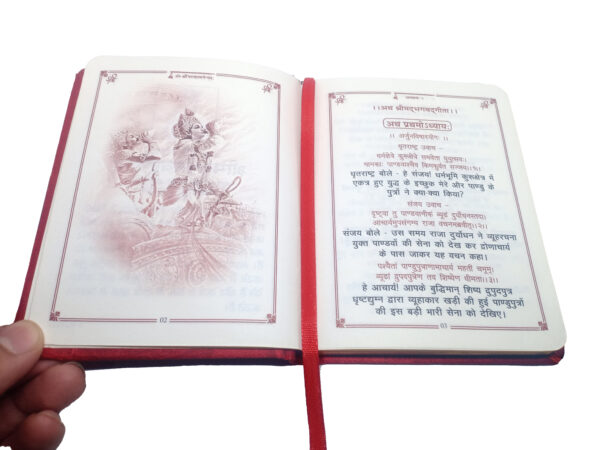 02
।।अथ श्रीमद्भगवद्गीता।।
अथ प्रथमोऽध्यायः
।। अर्जुनविषादयोगः ।।
धृतराष्ट्र उवाच –
धर्मक्षेत्रे कुरुक्षेत्रे समवेता युयुत्सवः।
मामकाः पाण्डवाश्चैव किमकुर्वत सञ्जय।।१।।
धृतराष्ट्र बोले - हे संजय! धर्मभूमि कुरुक्षेत्र में
एकत्र हुए युद्ध के इच्छुक मेरे और पाण्डु के
पुत्रों ने क्या-क्या किया?
संजय उवाच –
दृष्ट्वा तु पाण्डवानीकं व्यूढं दुर्योधनस्तदा।
आचार्यमुपसंगम्य राजा वचनमब्रवीत्।।२।।
संजय बोले - उस समय राजा दुर्योधन ने व्यूहरचना
युक्त पाण्डवों की सेना को देख कर द्रोणाचार्य
के पास जाकर यह वचन कहा।
पश्यैतां पाण्डुपुत्राणामाचार्य महतीं चमूम्।
व्यूढां द्रुपदपुत्रेण तव शिष्येण धीमता।।३।।
हे आचार्य! आपके बुद्धिमान् शिष्य द्रुपदपुत्र
धृष्टद्युम्न द्वारा व्यूहाकार खड़ी की हुई पाण्डुपुत्रों
की इस बड़ी भारी सेना को देखिए।
03